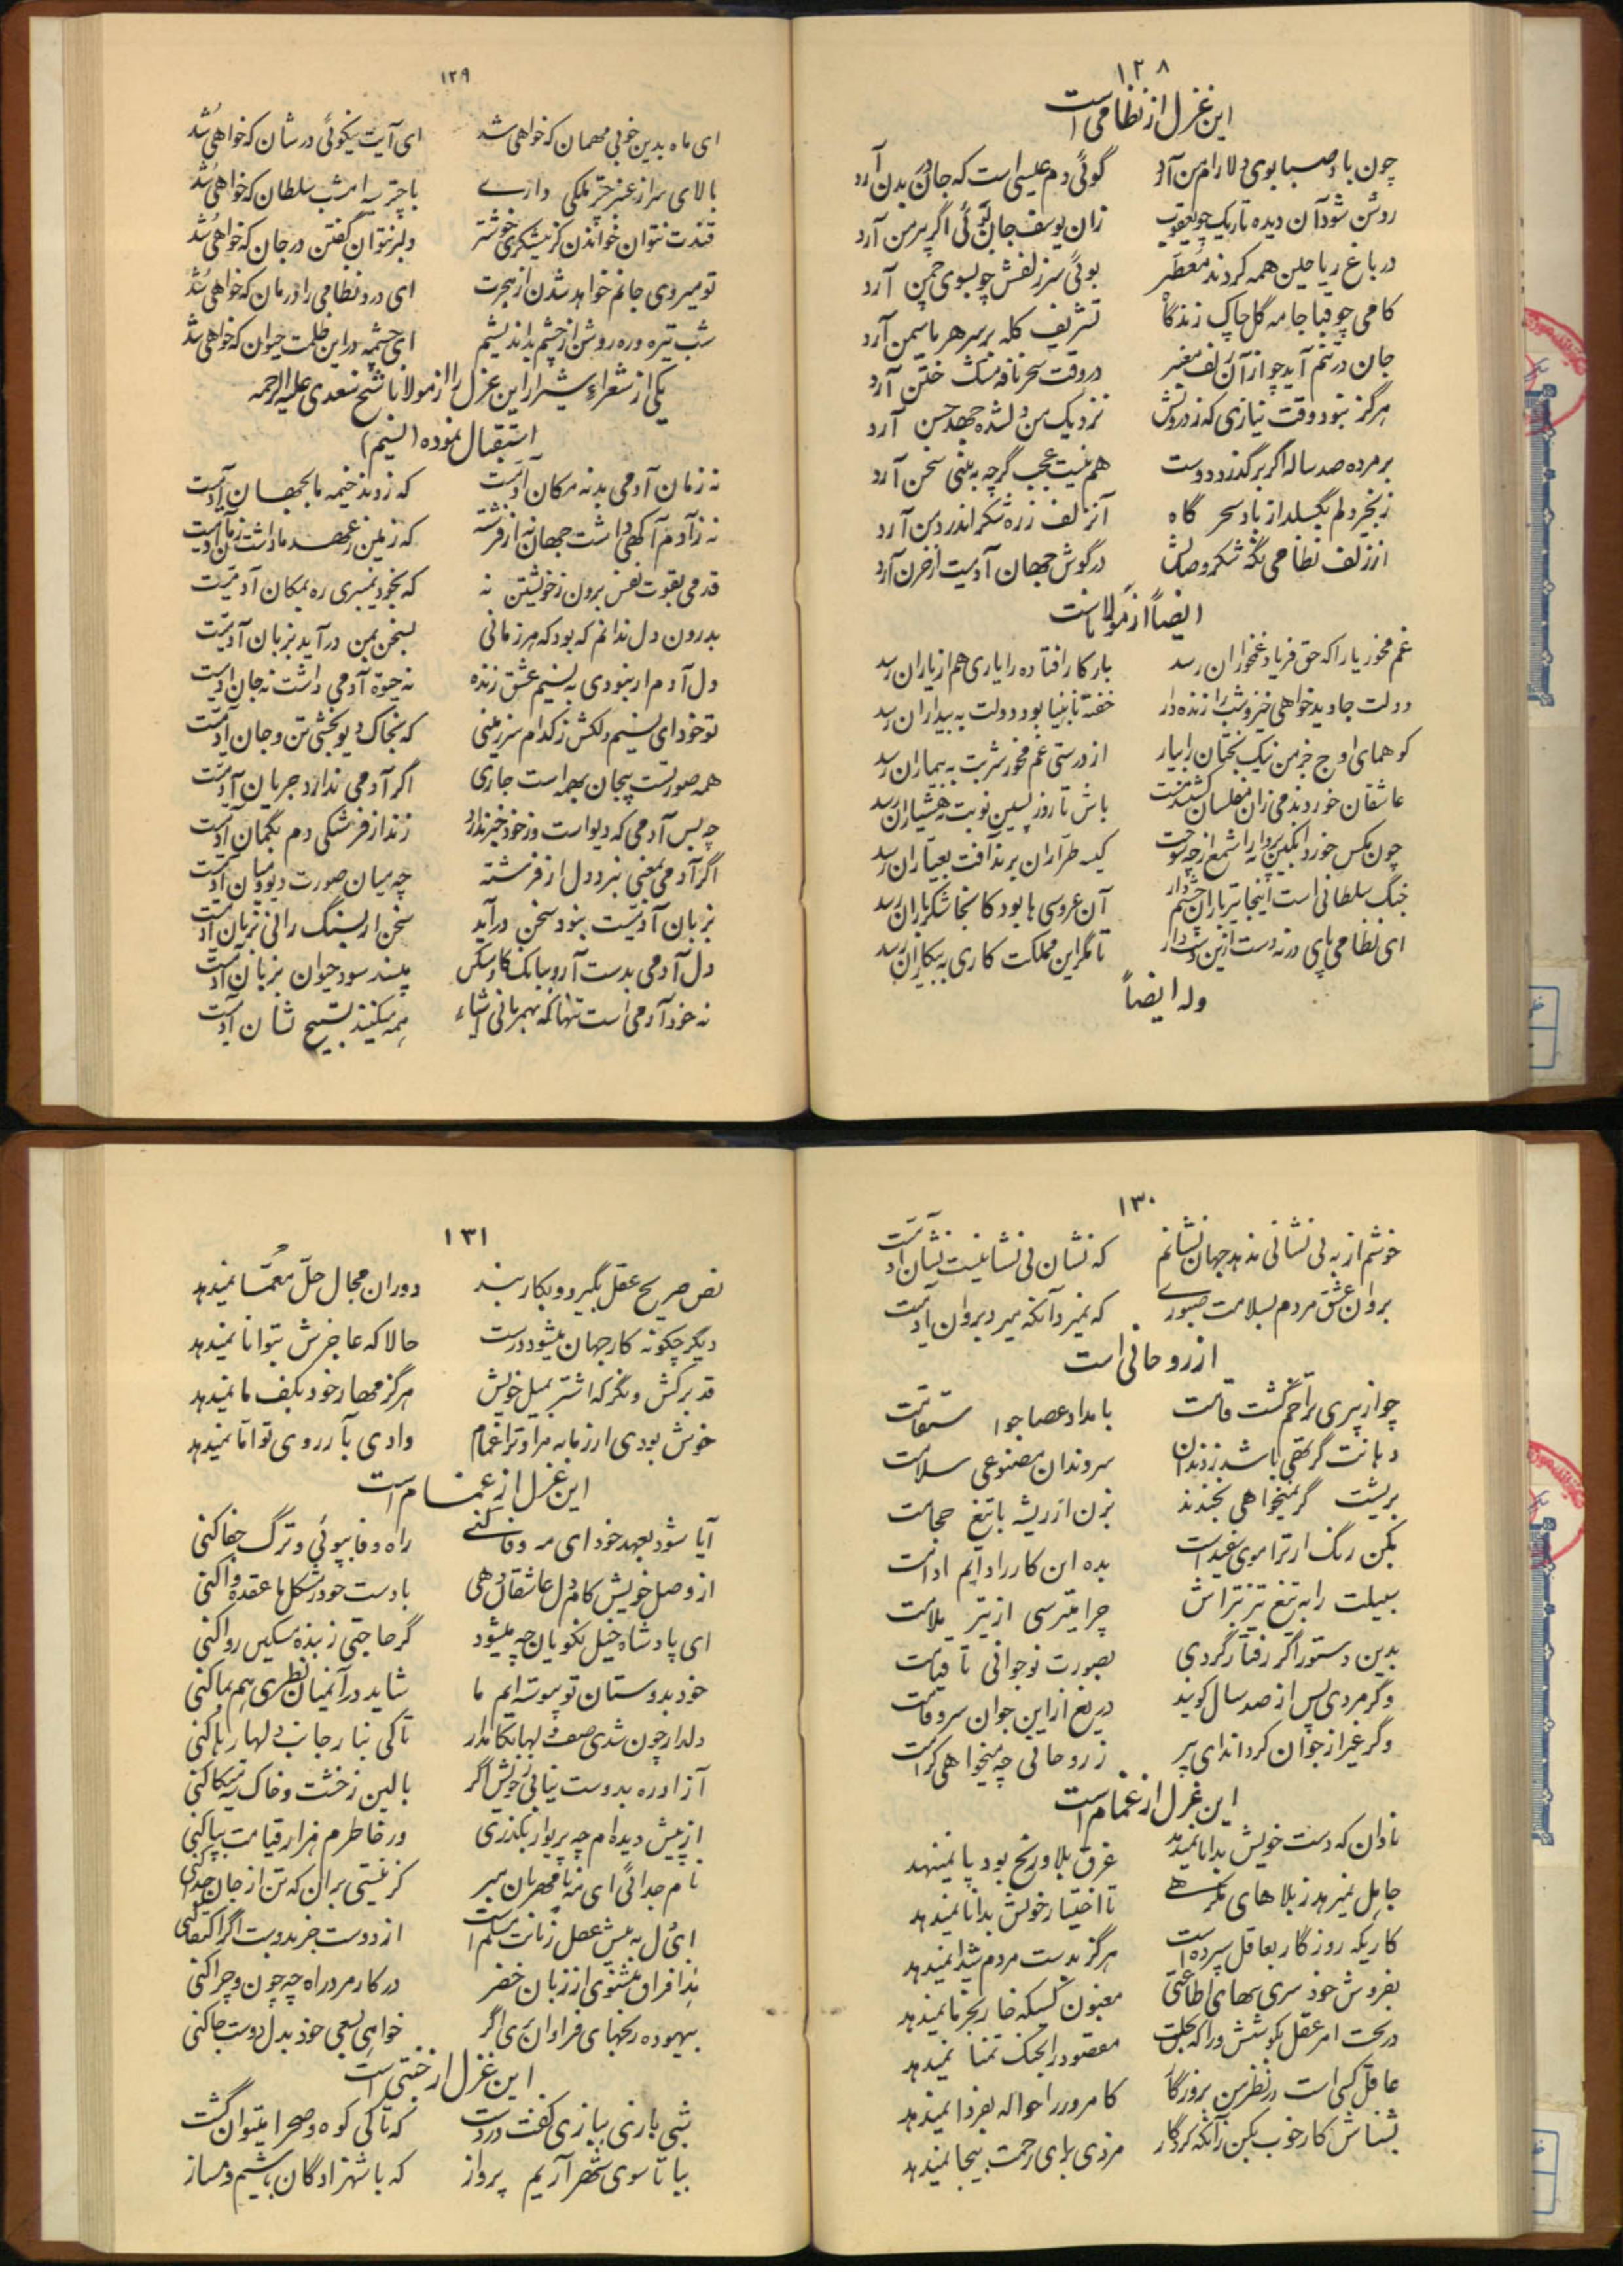 ۱۲۸
این غزل از نظامی است
چون باد صبا بوی دلارام من آرد گوئی دم عیسی است که جان در بدن آرد
روشن شود آن دیده تاریک چو یعقوب زان یوسف جان گوئی اگر پیرهن آرد
در باغ ریاحین همه گردند معطر بوئی سر زلفش چو بسوی چمن آرد
کامی چو قبا جامه گل چاک زند گاه تشریف کله بر سر هر یاسمن آرد
جان در تنم آید چو از آن زلف معنبر در وقت سحر نافه مشک ختن آرد
هرگز نبود وقت نیازی که ز درویش نزدیک من دلشده جهد حسن آرد
بر مرده صد ساله اگر بر گذرد دوست هم نیست عجب گر چه به بینی سخن آرد
زنجیر دلم بگسلد از باد سحر گاه آنزلف زره شکر اندر دهن آرد
از زلف نظامی نگه شکر وصالش در گوش جهان آدمیت از خرن آرد
ایضاً از مولانا است
غم مخور یارا که حق فریاد غمخواران رسد بار کار افتاده را یاری هم از یاران رسد
دولت جاوید خواهی خیز و شب را زنده دار خفته نابینا بود دولت به بیداران رسد
کو همای اوج خرمن نیک بختان را بیار از درستی غم مخور شربت به بیماران رسد
عاشقان خوردند می زان مفلسان گشتند مست باش تا روز پسین نوبت به هشیاران رسد
چون مگس خورد انگبین پروانه را شمع از چه سوخت کیسه طراران برند آفت بعیاران رسد
جنگ سلطانی است اینجا تیر باران چشم دار آن عروسی ها بود کانجا شکر باران رسد
ای نظامی پای در نه دست ازین دستدار تا مگر این مملکت کاری به بیکاران رسد
وله ایضاً
۱۲۹
ای ماه بدین خوبی مهمان که خواهی شد ای آیت نیکوئی در شان که خواهی شد
بالای سر از عنبر چتر ملکی داری با چتر سیه امشب سلطان که خواهی شد
قندت نتوان خواندن کز نیشکری خوشتر دلبر نتوان گفتن در جان که خواهی شد
تو میروی جانم خواهد شدن از هجرت ای درد نظامی را درمان که خواهی شد
شب تیره و ره روشن از چشم بد اندیشم ای چشمه در این ظلمت حیوان که خواهی شد
یکی از شعراء شیراز این غزل را از مولانا شیخ سعدی علیه الرحمه
استقبال نموده (نسیم)
نه زمان آدمی بد نه مکان آدمیت که زدند خیمه ما بجهان آدمیت
نه ز آدم آگهی داشت جهان نه از فرشته که زمین ز عهد ما داشت زمان آدمیت
قدمی بقوت نفس برون ز خویشتن نه که بخود نمیبری ره بمکان آدمیت
بدرون دل ندانم که بود که هر زمانی بسخن بمن در آید بزبان آدمیت
دل آدم ار نبودی به نسیم عشق زنده نه حیوة آدمی داشت نه جان آدمیت
تو خود ای نسیم دلکش ز کدام سرزمینی که بخاک دیو بخشی تن و جان آدمیت
همه صورتست بیجان بهمه است جاری اگر آدمی ندارد جریان آدمیت
چه بس آدمی که دیو است و ز خود خبر ندارد زند از فرشتگی دم بگمان آدمیت
اگر آدمی بمعنی نبرد دل از فرشته چه میان صورت دیو و میان آدمیت
بزبان آدمیت بنود سخن در آید سخن ار بسنگ رانی بزبان آدمیت
دل آدمی بدست آر و ببانک گاو مشکن مپسند سود حیوان بزیان آدمیت
نه خود آدمی است تنها که بمهربانی اشیاء همه میکنند تسبیح نشان آدمیت
۱۳۰
خوشم از به بی نشانی ندهد جهان نشانم که نشان بی نشانیست نشان آدمیت
بروان عشق مردم بسلامت صبوری که نمیرد آنکه میرد بروان آدمیت
از روحانی است
چو از پیری ترا خم گشت قامت بامداد عصا جوا ستقامت
دهانت گر تهی باشد ز دندان بروندان مصنوعی سلامت
بریشت گر نمیخواهی بخندند بزن از ریشه با تیغ حجامت
بکن رنگ ار ترا موی سفید است بده این کار را دایم ادامت
سبیلت را به تیغ تیز بتراش چرا میترسی از تیر ملامت
بدین دستور اگر رفتار کردی بصورت نوجوانی تا قیامت
و گر مردی پس از صد سال گویند دریغ از این جوان سرو قامت
و گر غیر از جوان کرد اندای پیر ز روحانی چه میخواهی کرامت
این غزل از غمام است
نادان که دست خویش بدانا نمیدهد غرق بلا و رنج بود پا نمینهد
جاهل نمیرهد ز بلاهای تا اختیار خویش بدانا نمیدهد
کاریکه روزگار بعاقل سپرده است هرگز بدست مردم شیدا نمیدهد
بفروش خود سری بهای اطاعتی مغبون کسیکه خار بخرما نمیدهد
در تحت امر عقل بکوشش درا که بخت مقصود را بجنگ تمنا نمیدهد
عاقل کسی است در نظر من بروزگار کامروز را حواله بفردا نمیدهد
بشناش کار خوب بکن زآنکه کردگار مزدی برای زحمت بیجا نمیدهد
۱۳۱
نص صریح عقل بگیر و بکار بند دوران مجال حل معما نمیدهد
دیگر چگونه کار جهان میشود درست حالا که عاجزش بتوانا نمیدهد
قد برکش و نگر که اشتر بمیل خویش هرگز مهار خود بکف ما نمیدهد
خوش بودی ار زمانه مرا و ترا غمام دادی بآرزوی تو اتا نمیدهد
این غزل از غمام است
آیا شود بعهد خود ای مه وفا کنی راه وفا بپوئی و ترک جفا کنی
از وصل خویش کام دل عاشقان دهی با دست خود ز مشکل ما عقده وا کنی
ای پادشاه خیل نکویان چه میشود گر حاجتی ز بنده مسکین روا کنی
خود بدوستان تو پیوسته ایم ما شاید در آنمیان نظری هم بما کنی
دلدار چون شدی صف دلها نگاهدار تا کی بنا ز جانب دلها رها کنی
آزاد ره بدوست نیابی ز خویش اگر بالین ز خشت و خاک سیه متکا کنی
از پیش دیده ام چه پریوار بگذری در خاطرم هزار قیامت بپا کنی
نام جدائی ای مه نامهربان مبر کز نیستی بران که تن از جان جدا کنی
ایدل به پیش عقل زیانت مسلم است از دوست جز بدوست اگر اکتفا کنی
هذا فراق نشنوی از زبان خضر در کار مرد راه چه چون و چرا کنی
بیهوده رنجهای فراوان بری اگر خواهی بسعی خود بدل دوست جا کنی
این غزل از ختنی است
شبی بازی ببازی گفت در دشت که تا کی کوه و صحرا میتوان گشت
بیا تا سوی شهر آریم پرواز که با شهزادگان باشیم دمساز